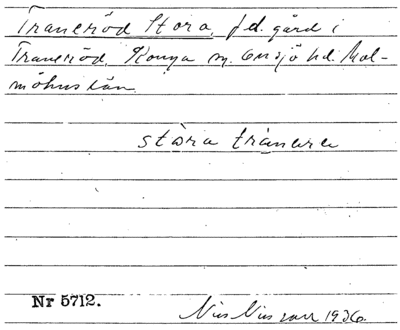 Traneröd Stora, f.d. gård i
Traneröd, Konga sn. Onsjö hd. Mal-
möhus län.
stóra tránere
Nr 5712.
Nils Nilsson 1936.